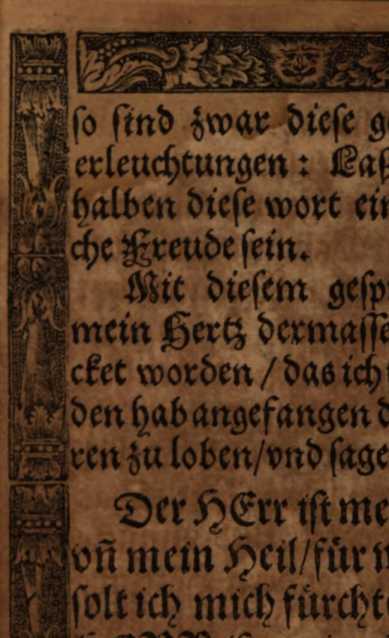 so sind zwar diese g
erleuchtungen: Laß
halben diese wort ein
che Freude sein.
Mit diesem gesp
mein Hertz dermasse
cket worden / das ich
den hab angefangen d
ren zu loben/vnd sage
Der HErr ist me
vñ mein Heil/für
solt ich mich fürcht